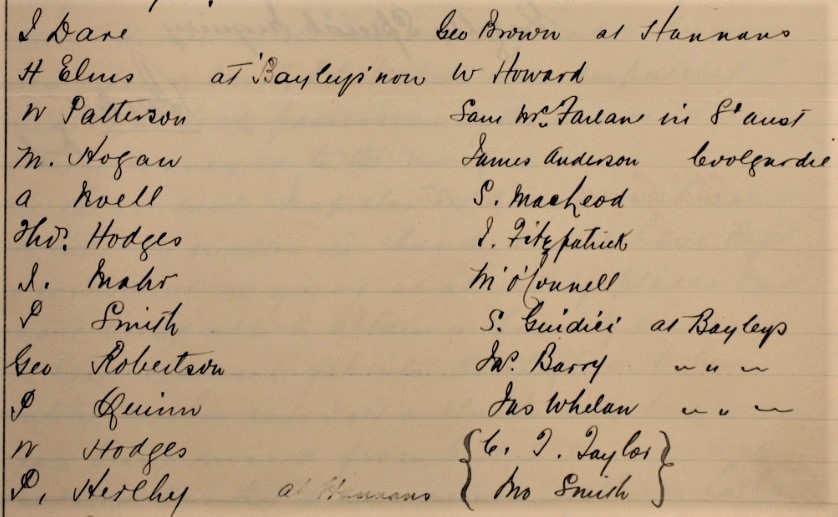 J Dare Geo Brown at Hannans
H Elms at 'Bayleys' now W Howard
W Patterson Sam McFarlane in St aust
M. Hogan James Anderson Coolgardie
A Noell S. MacLeod
Thos. Hodges J. Fitzpatrick
J. Mahr M O'Connell
P Smith S. Guidici at Bayleys
Geo Robertson Jas. Barry " " "
P Quinn Jas Whelan " " "
W Hodges { C. J. Taylor }
P, Herlhy at Hannans { Jno Smith }